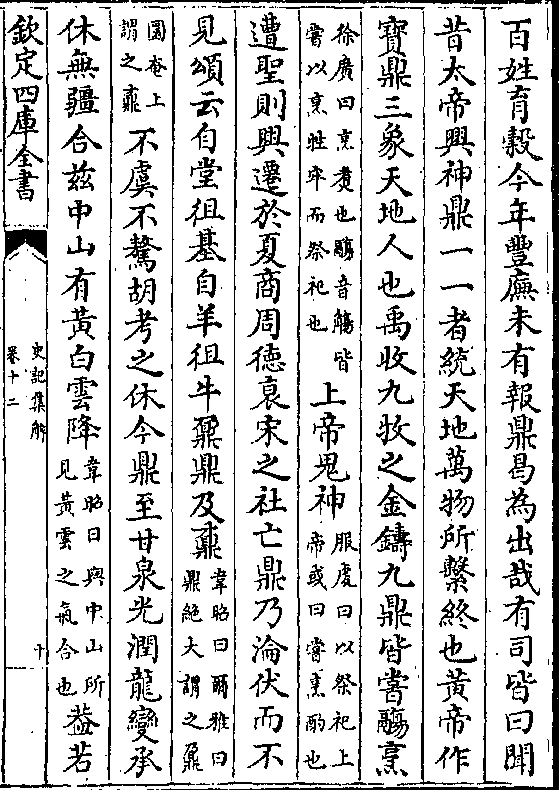 百姓育穀今年豐廡未有報鼎曷為出哉有司皆曰聞
昔太帝興神鼎一一者統天地萬物所繫終也黄帝作
寶鼎三象天地人也禹收九牧之金鑄九鼎皆嘗鬺烹
徐廣曰烹煑也鬺音觴皆
嘗以烹牲牢而祭祀也
上帝鬼神
服虔曰以祭祀上
帝或曰嘗烹酌也
遭聖則興遷於夏商周德衰宋之社亡鼎乃淪伏而不
見頌云自堂徂基自羊徂牛鼐鼎及鼒
韋昭曰爾雅曰
鼎絶大謂之鼐
圜奄上
謂之鼒
不虞不驁胡考之休今鼎至甘泉光潤龍變承
休無疆合兹中山有黄白雲降
韋昭曰與中山所
見黄雲之氣合也
葢若
欽定四庫全書
史記集解
卷十二
十